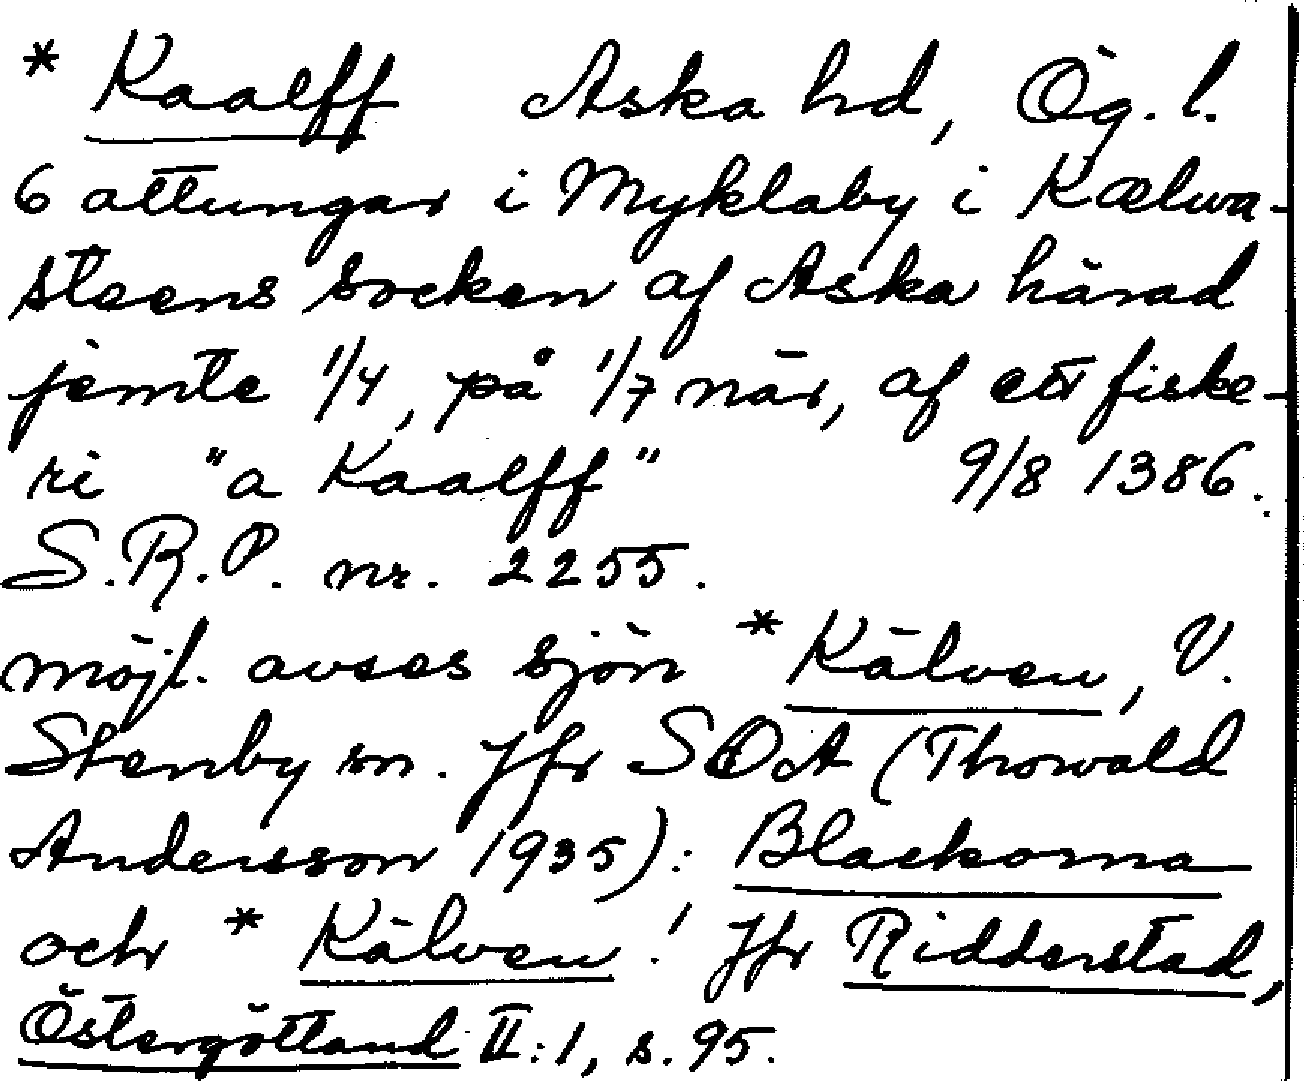 * Kaalff Aska hd, Ög. l.
6 attungar i Myklaby i Kælwa-
steens socken af Aska härad
jemte 1/4, på 1/7 när, af ett fiske-
ri "a Kaalff" 9/8 1386.
S.R.P. nr. 2255.
möjl. avses sjön * Kälven, V.
Stenby sn. Jfr SOA (Thorvald
Andersson 1935): Blackorna
och * Kälven! Jfr Ridderstad,
Östergötland II:1, s. 95.